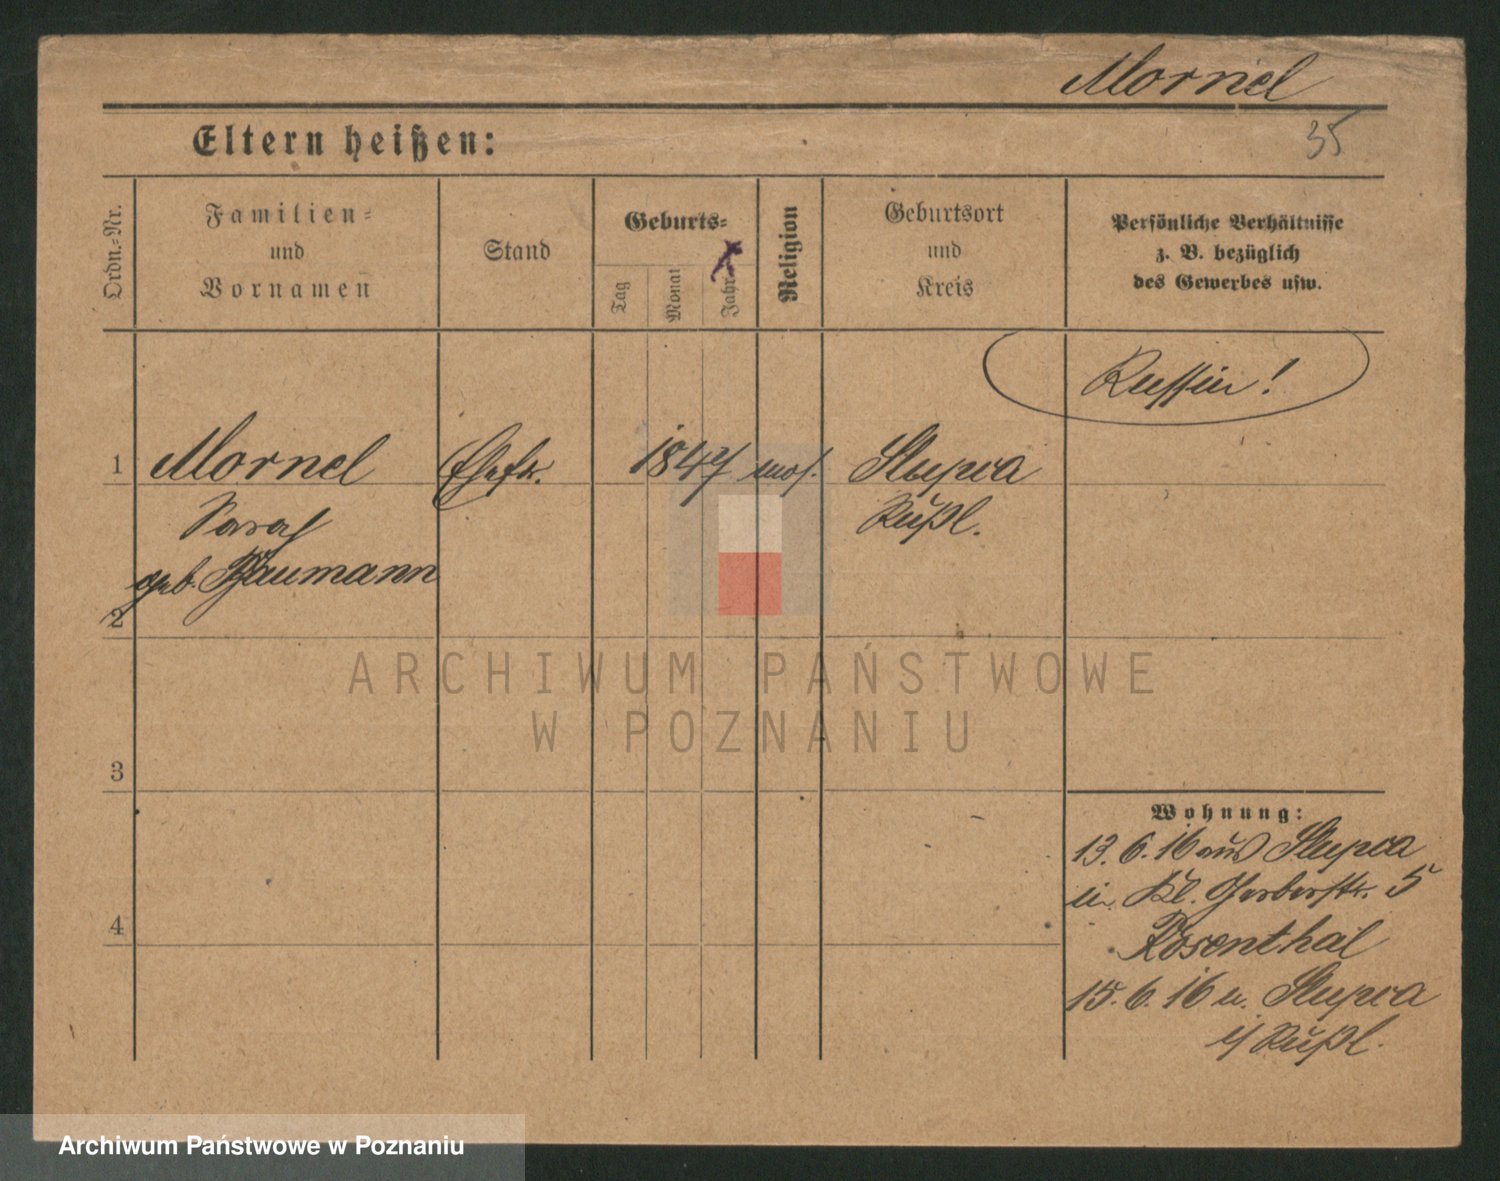 Mornel
35
Eltern heißen:
Ordn.=Nr.
Familien=
und
Vornamen
Stand
Geburts=
Tag
Monat
Jahr
Religion
Geburtsort
und
Kreis
Persönliche Verhältnisse
z. B. bezüglich
des Gewerbes usw.
Russin!
1 Mornel Ehefr. 1847 mos. Slupca
Sarah Rußl.
geb. Baumann
2
3
4
Wohnung:
13.6.16 aus Slupca
in Kl. Gerberstr. 5
Rosenthal
15.6.16 n. Slupca
i/ Rußl.
ARCHIWUM PAŃSTWOWE
W POZNANIU
Archiwum Państwowe w Poznaniu